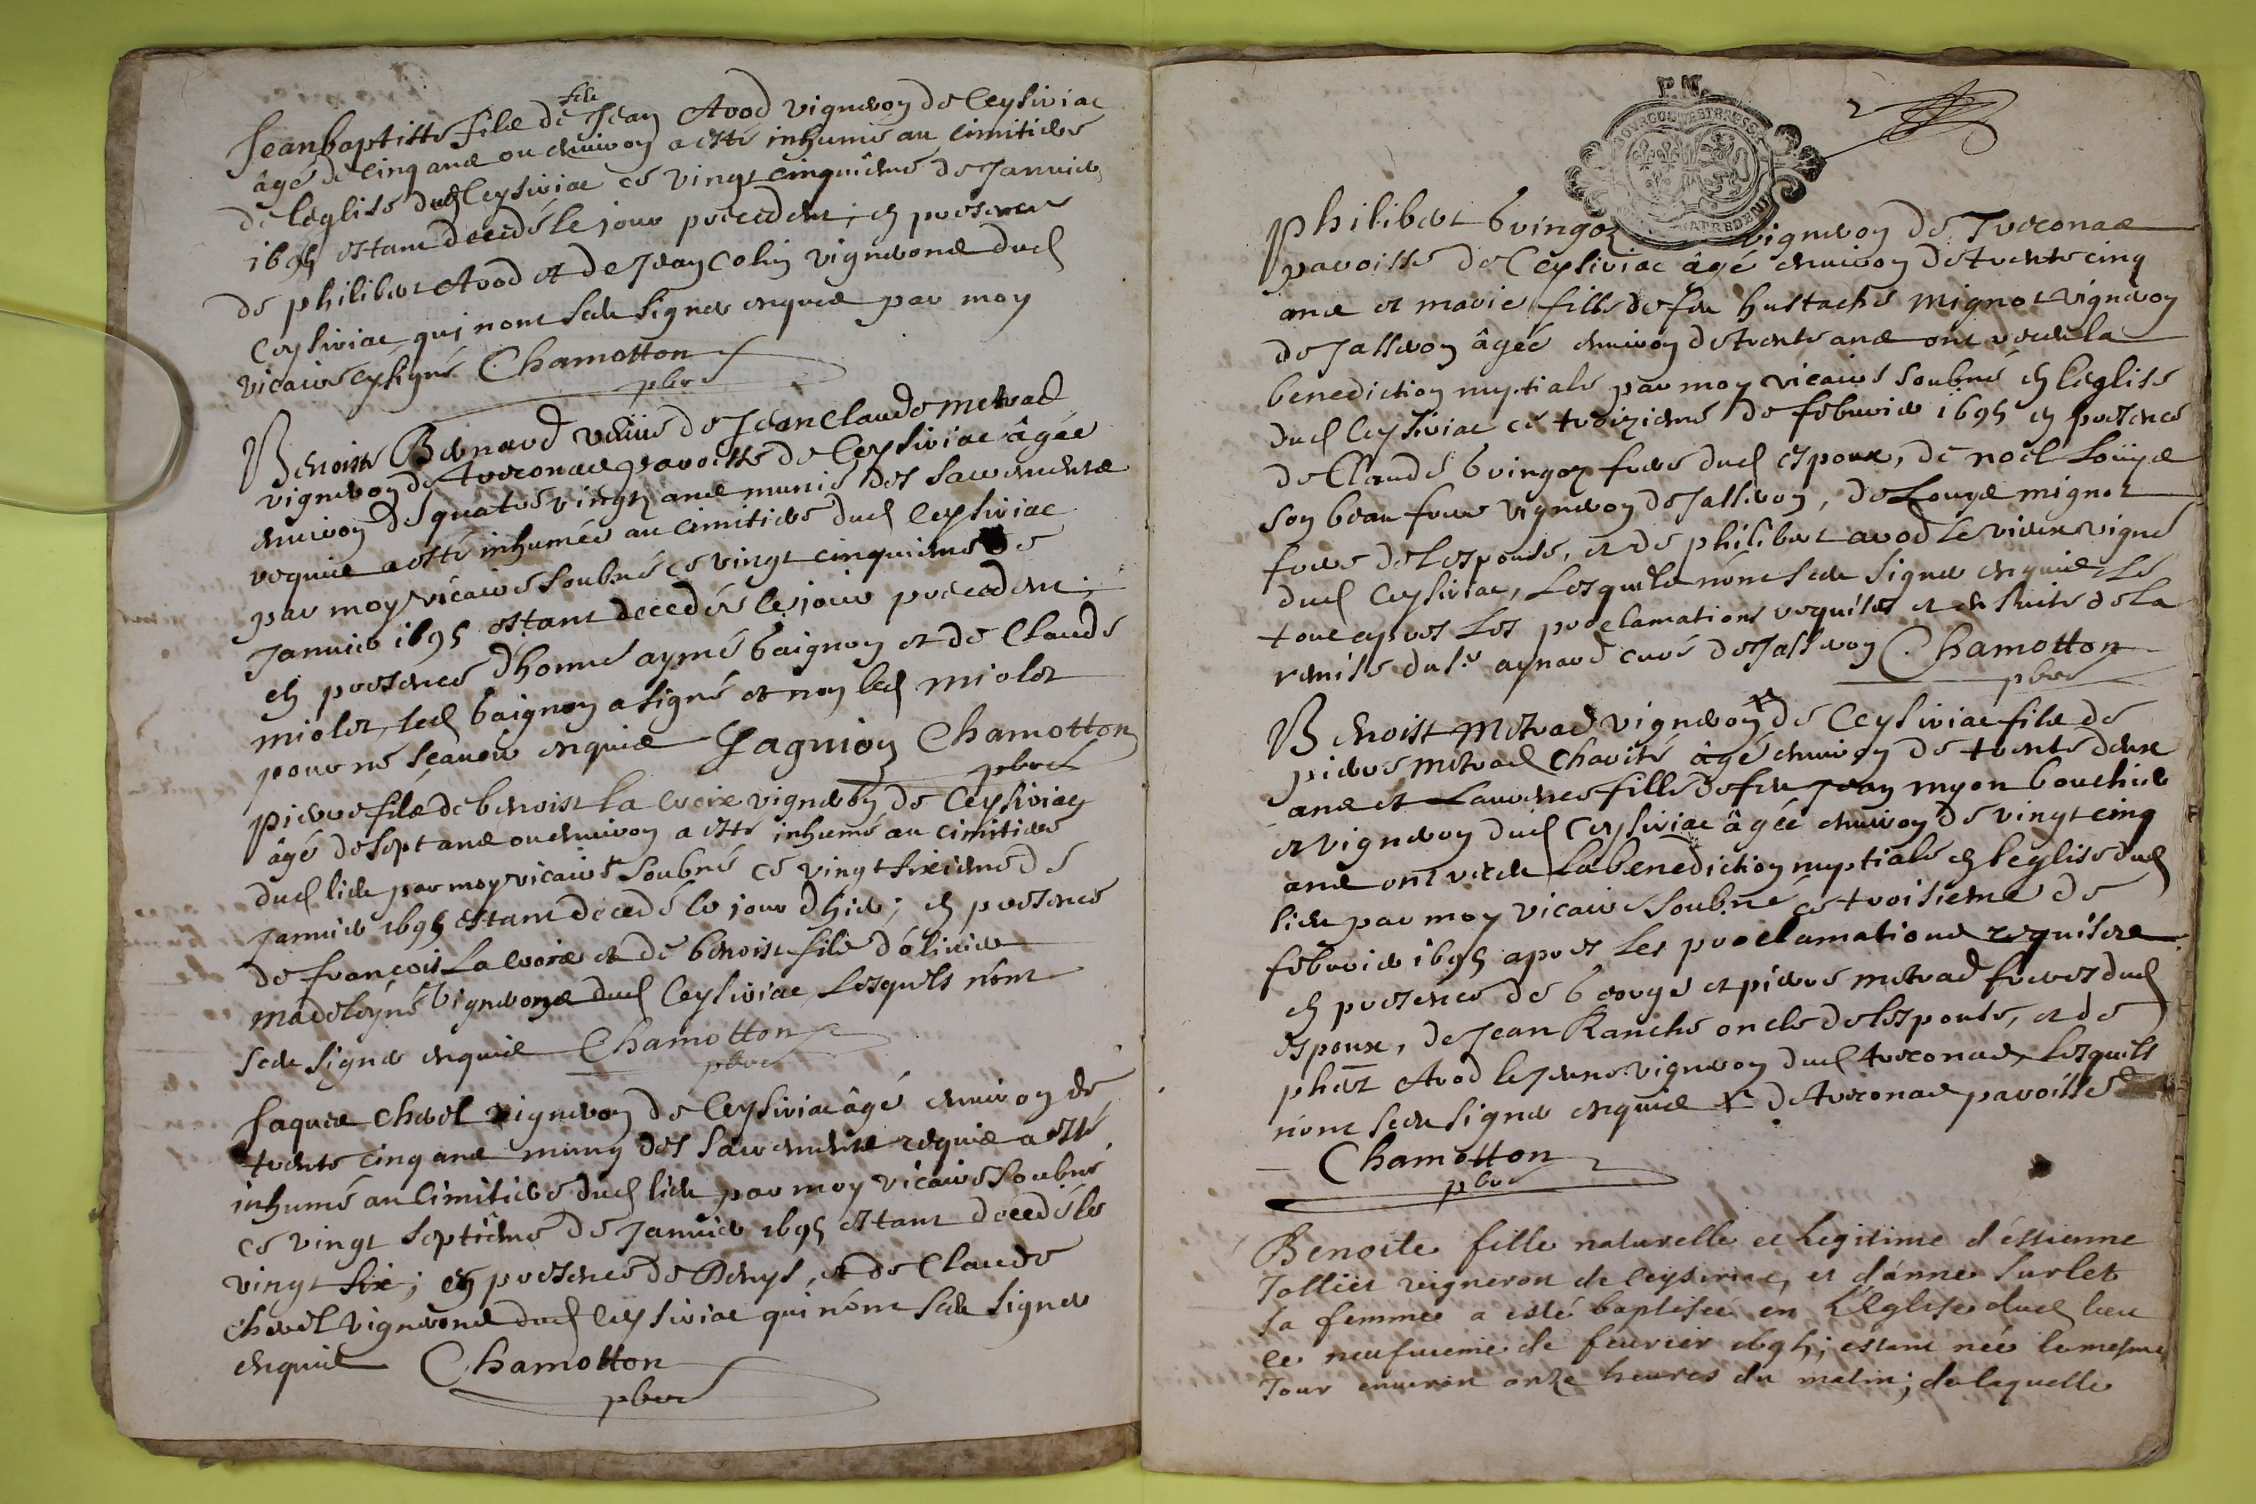 Jeanbaptiste fils de feu Jean Avod vigneron de Ceysiriac
âgé de cinq ans ou environ a esté inhumé au cimitiere
de leglise dud Ceysiriac ce vingt cinquième de Januier
1695 estant decedé le jour precedent; en presence
de philibert Avod et de Jean Colin vignerons dud
Ceysiriac qui nont sceu signer enquis par moy
vicaire sousigné Chamotton
pbre
Benoiste Bernard veüve de Jean Claude metrad
vigneron de Treconas parroisse de Ceysiriac âgée
environ de quatre vingt ans munie des sacrements
requis a esté inhumée au cimitiere dud Ceysiriac
par moy vicaire soubné ce vingt cinquieme de
Januier 1695 estant decedée le jour precedent;
en presence d'honne aymé Gaignon et de Claude
miolet, led Gaignon a signé et non led miolet
pour ne scauoir enquis Gagnion Chamotton
pbre
pierre fils de benoist la croix vigneron de Ceysiriac
âgé de sept ans ou environ a esté inhumé au cimitiere
dud lieu par moy vicaire soubné ce vingt sixieme de
Januier 1695 estant decedé le jour d'hier; en presence
de françois La croix et de benoist fils d'oliuier
madeleyne vignerons dud Ceysiriac, lesquels n'ont
sceu signer enquis Chamotton
pbre
Jaques Chevel vigneron de Ceysiriac âgé environ de
trente cinq ans muny des sacrements requis a esté
inhumé au cimitiere dud lieu par moy vicaire soubné
ce vingt septième de Januier 1695 estant decedé le
vingt six; en presence de Denys, et de Claude
Chevel vignerons dud Ceysiriac qui n'ont sceu signer
enquis Chamotton
pbre
P.M.
BOURGOGNE BRESSE
2
philibert Gringoz vigneron de Treconas
parroisse de Ceysiriac âgé environ de trente cinq
ans et marie fille de feu hustache mignot vigneron
de Jasseron âgée environ de trente ans ont receu la
benediction nuptiale par moy vicaire soubné en leglise
dud Ceysiriac ce troizieme de februier 1695 en presence
de Claude Gringoz frere dud espoux, de noel Loüys
son beau frere vigneron de Jasseron, de Louys mignot
frere de lespouse, et de philibert avod le vieux vigné
dud Ceysiriac, Lesquels nont sceu signer enquis Le
tout apres les proclamations requises et en suite de la
remise du sr aynard curé de Jasseron Chamotton
pbre
Benoist Metrad vigneron + de Ceysiriac fils de
pierre metrad Charité âgé environ de trente deux
ans et Laurence fille de feu Jean myon bouchier
et vigneron dud Ceysiriac âgée environ de vingt cinq
ans ont receu la benediction nuptiale en leglise dud
lieu par moy vicaire soubné ce troisieme de
februier 1695 apres les proclamations requises
en presence de George et pierre metrad freres dud
espoux, de Jean Ranche oncle de lespouse, et de
phert Avod le Jeune vigneron dud treconas, lesquels
n'ont sceu signer enquis + de Treconas parroisse
Chamotton
pbre
Benoite fille naturelle et Legitime d'éstienne
Jollier vigneron de Ceysiriac, et d'anne Surlet
sa femme a esté baptisée en L'Eglise dud lieu
le neufuieme de feurier 1695; estant née le mesme
Jour enuiron onze heures du matin; de laquelle